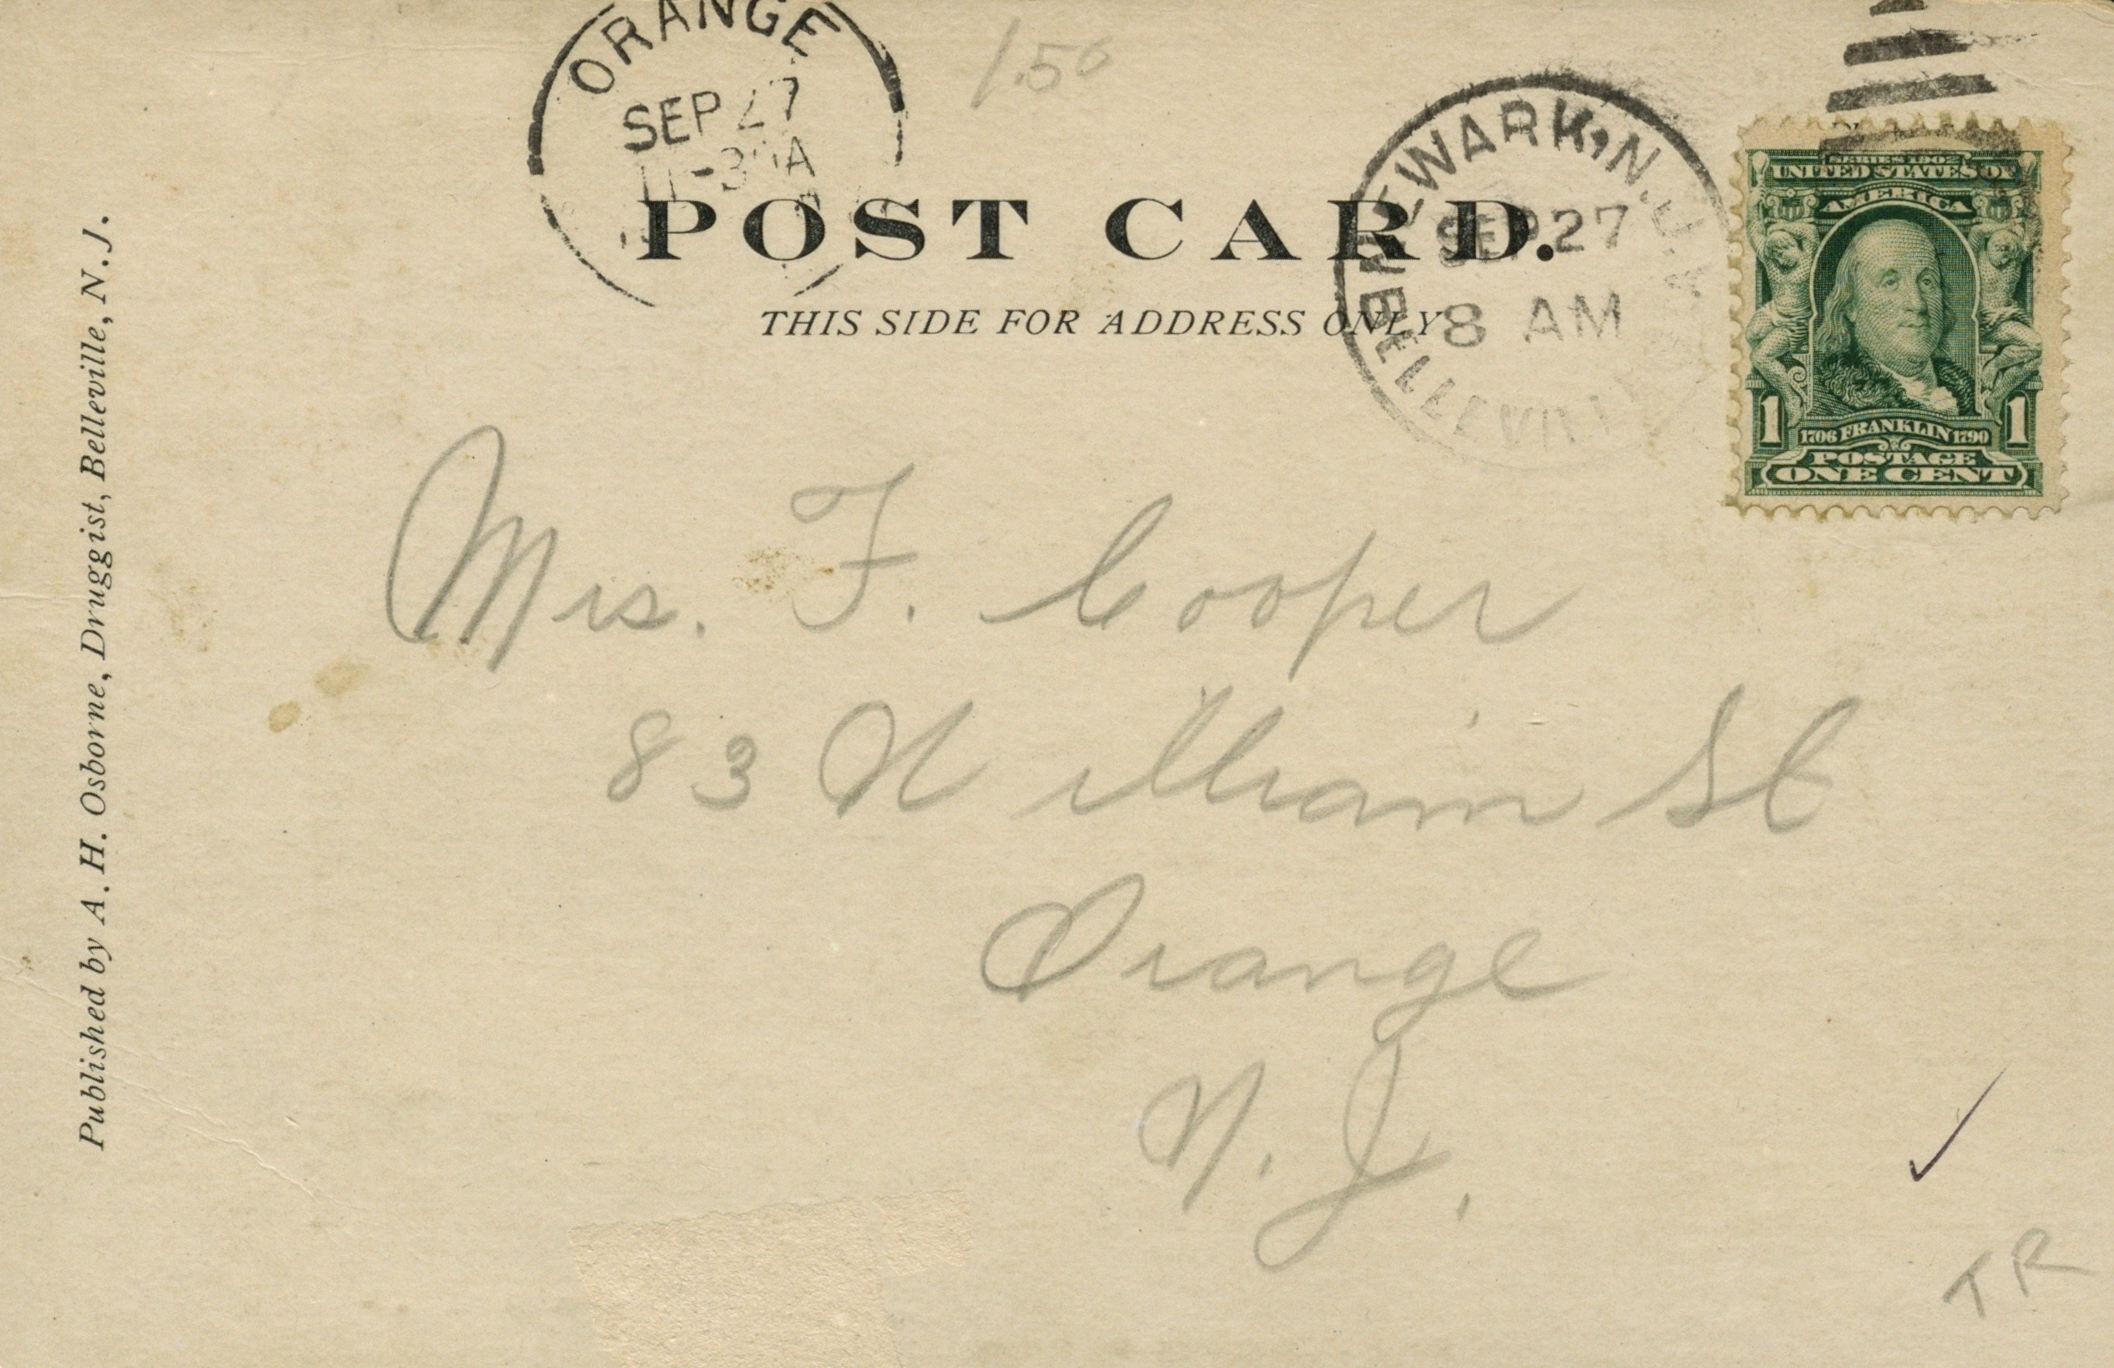 ORANGE
SEP 27
11-30A
1.50
NEWARK, N.J.
SEP 27
8 AM
BELLEVILLE
SERIES 1902
UNITED STATES OF
AMERICA
1 1
1706 FRANKLIN 1790
POSTAGE
ONE CENT
POST CARD.
THIS SIDE FOR ADDRESS ONLY
Published by A. H. Osborne, Druggist, Belleville, N. J.
Mrs. F. Cooper
83 William St
Orange
N. J.
TR